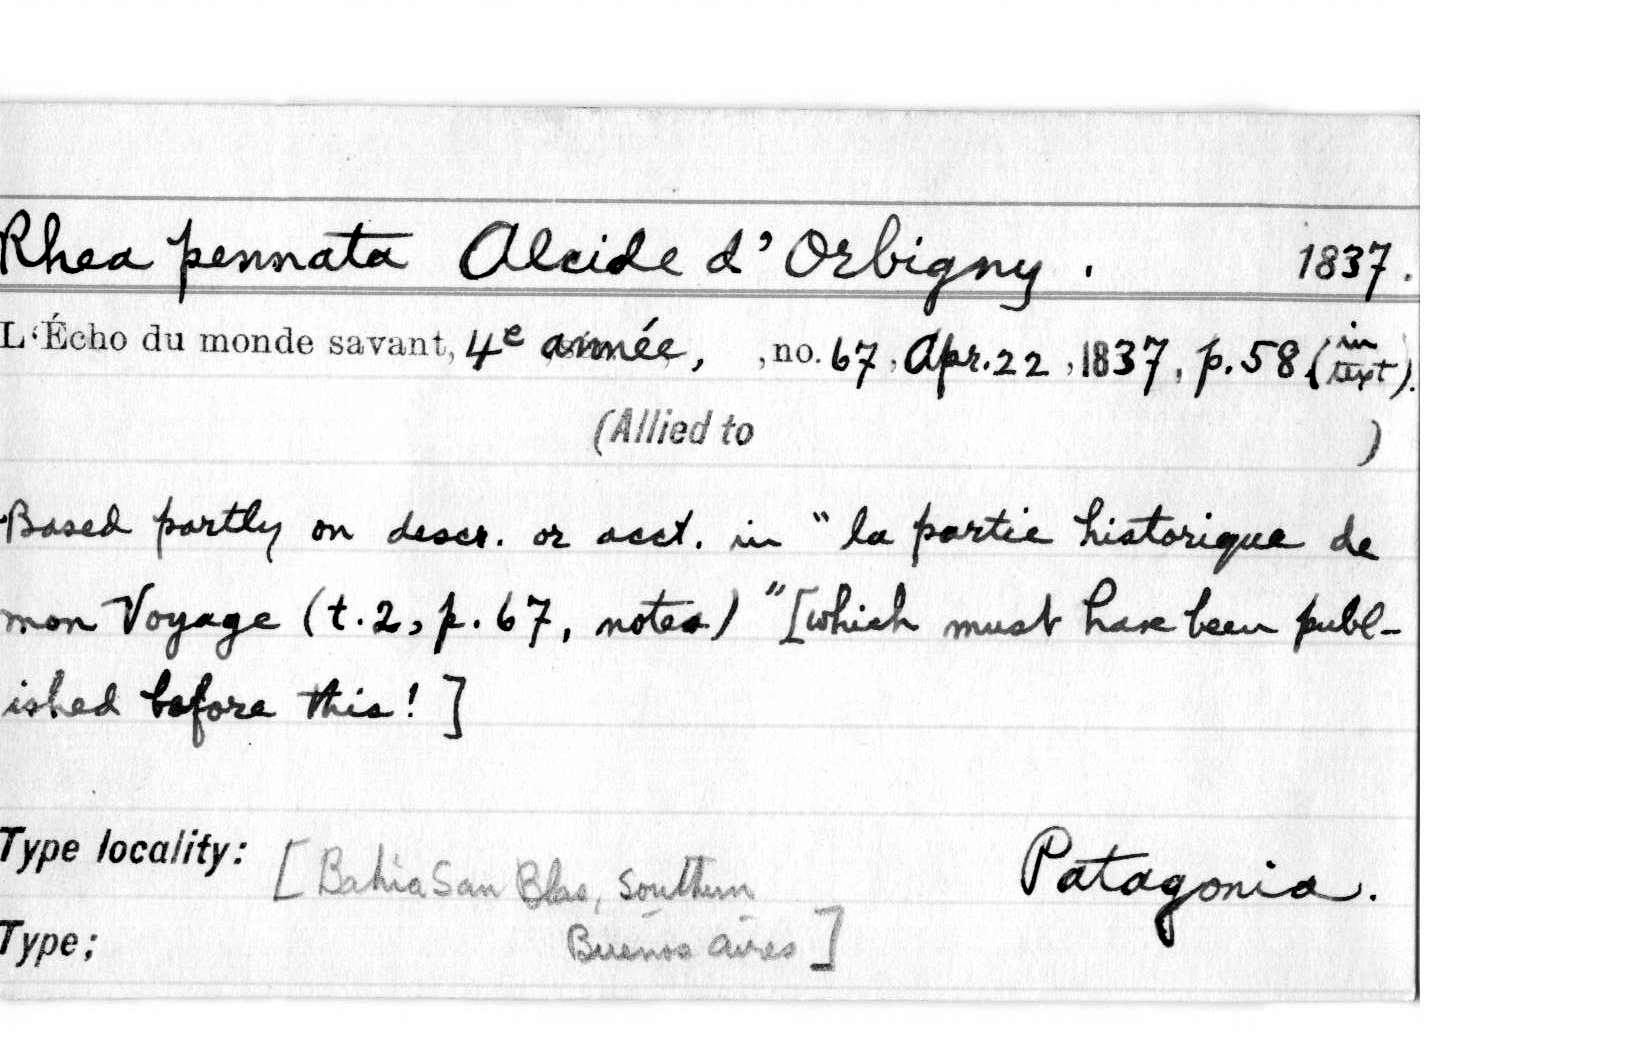 Rhea pennata Alcide d'Orbigny. 1837.
L'Écho du monde savant, 4e année, , no. 67, Apr. 22, 1837, p. 58 (in text).
(Allied to )
Based partly on descr. or acct. in "la partie historique de
mon Voyage (t. 2, p. 67, notes)" [which must have been publ-
ished before this! ]
Type locality: [Bahia San Blas, Southern Patagonia.
Buenos Aires]
Type;